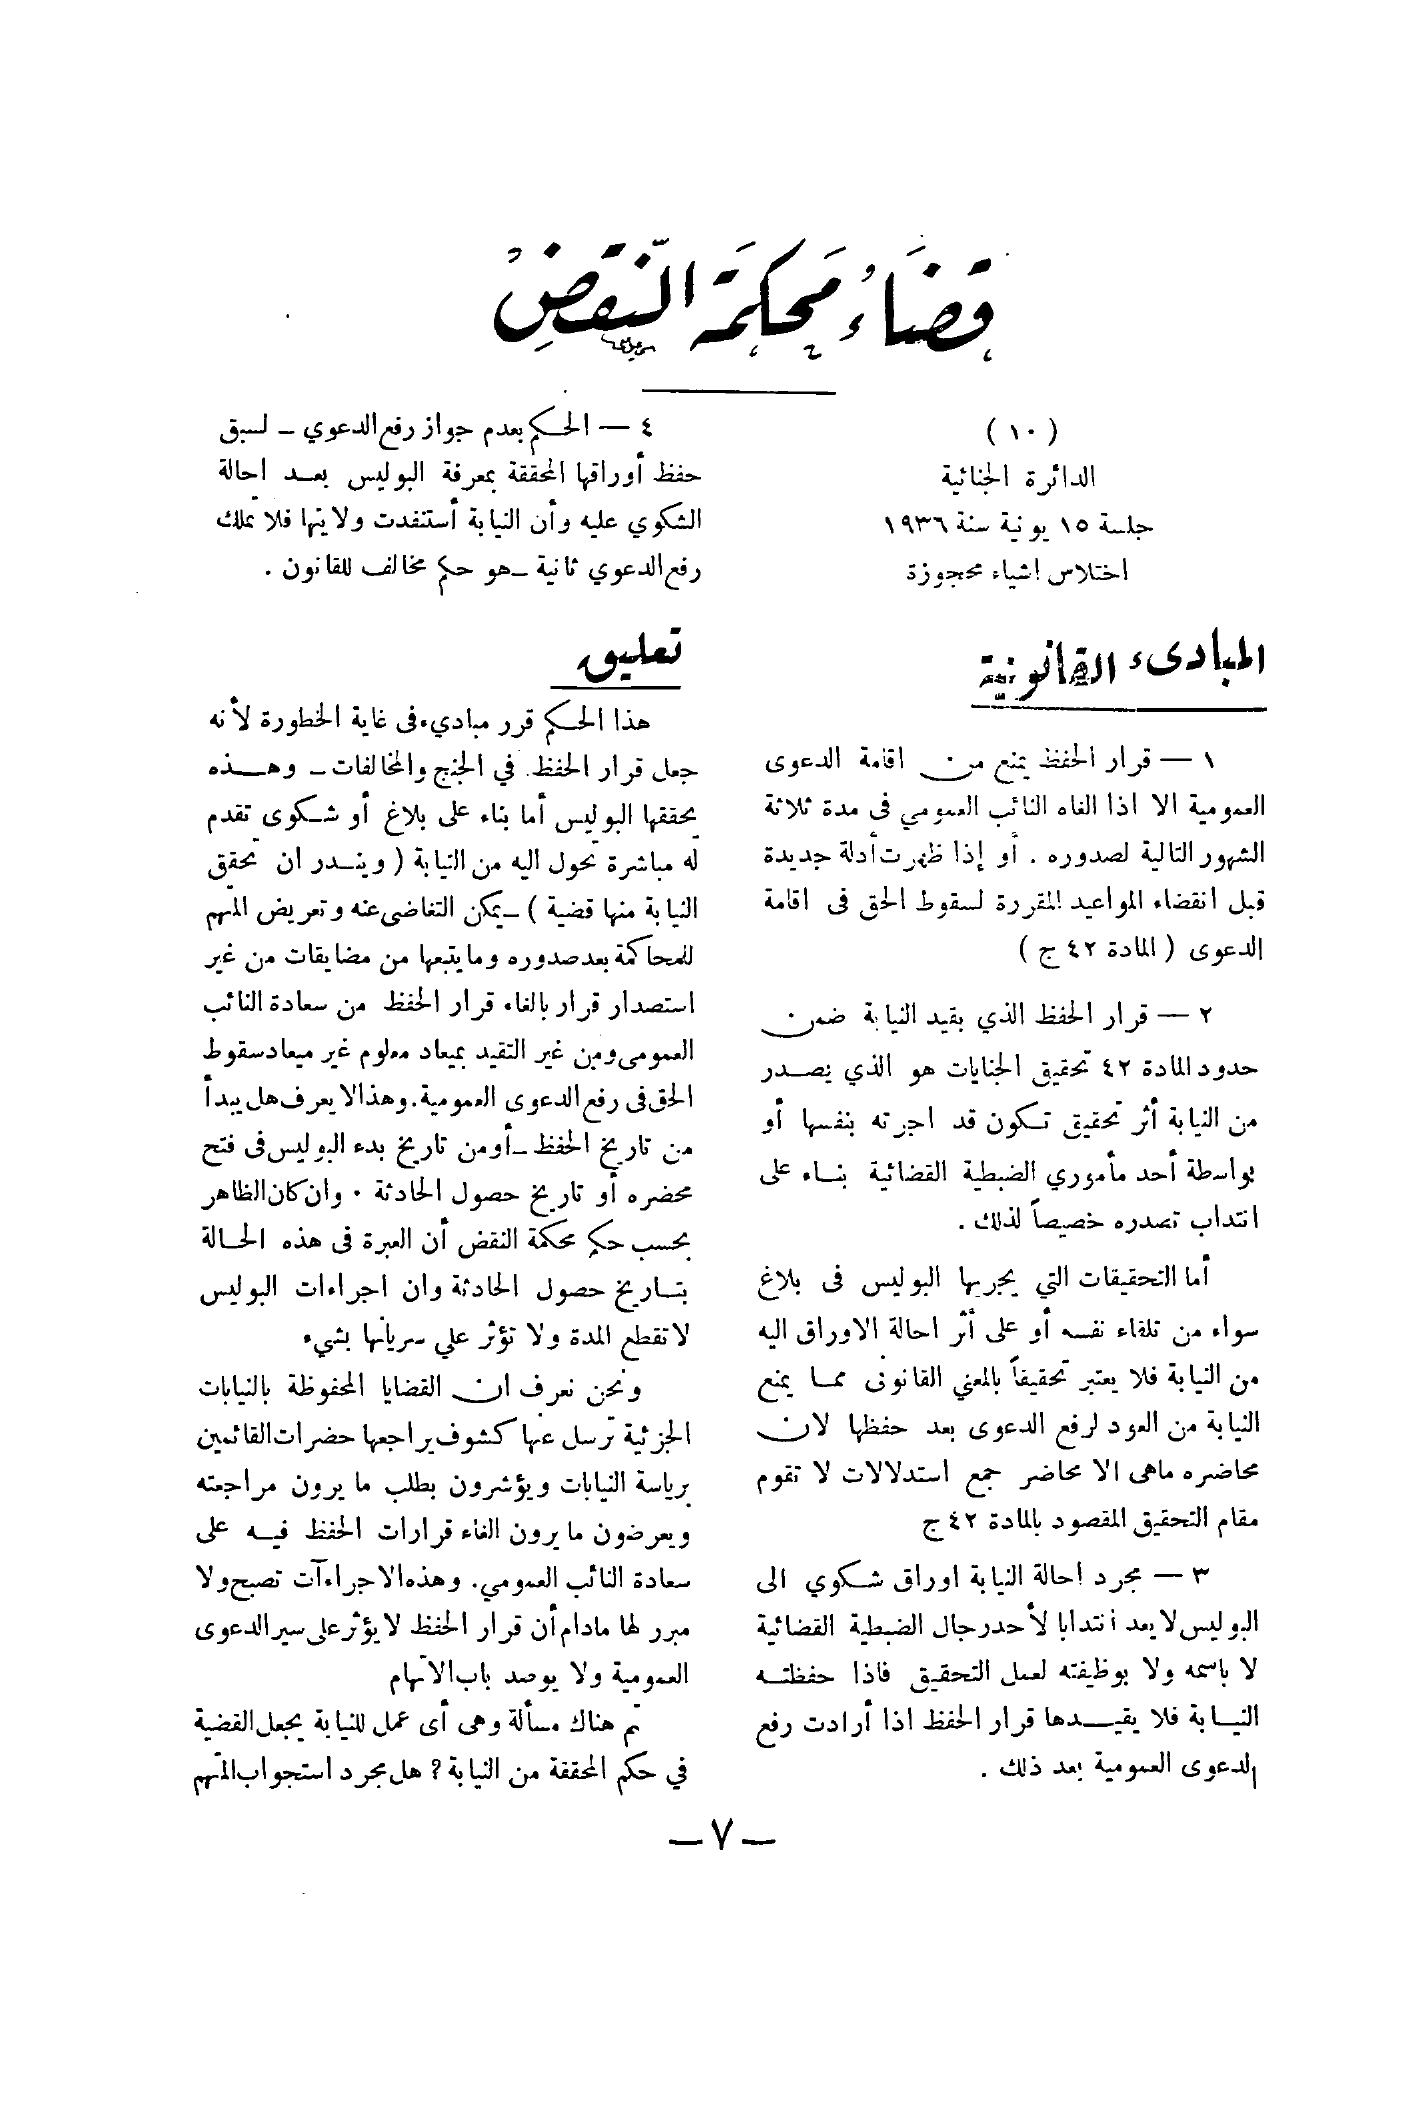 قضاء محكمة النقض
(١٠)
الدائرة الجنائية
جلسة ١٥ يونية سنة ١٩٣٦
اختلاس اشياء محجوزة
المبادىء القانونية
١ — قرار الحفظ يمنع من اقامة الدعوى
العمومية الا اذا الغاه النائب العمومي فى مدة ثلاثة
الشهور التالية لصدوره . أو إذا ظهرت أدلة جديدة
قبل انقضاء المواعيد المقررة لسقوط الحق فى اقامة
الدعوى ( المادة ٤٢ ج )
٢ — قرار الحفظ الذي يقيد النيابة ضمن
حدود المادة ٤٢ تحقيق الجنايات هو الذي يصدر
من النيابة أثر تحقيق تكون قد اجرته بنفسها أو
بواسطة أحد مأموري الضبطية القضائية بناء على
انتداب تصدره خصيصاً لذلك .
أما التحقيقات التي يجريها البوليس فى بلاغ
سواء من تلقاء نفسه أو على أثر احالة الاوراق اليه
من النيابة فلا يعتبر تحقيقاً بالمعني القانونى مما يمنع
النيابة من العود لرفع الدعوى بعد حفظها لان
محاضره ماهى الا محاضر جمع استدلالات لا تقوم
مقام التحقيق المقصود بالمادة ٤٢ ج
٣ — مجرد احالة النيابة اوراق شكوي الى
البوليس لا يعد انتدابا لأحد رجال الضبطية القضائية
لا باسمه ولا بوظيفته لعمل التحقيق فاذا حفظته
النيابة فلا يقيدها قرار الحفظ اذا أرادت رفع
الدعوى العمومية بعد ذلك .
٤ — الحكم بعدم جواز رفع الدعوي – لسبق
حفظ أوراقها المحققة بمعرفة البوليس بعد احالة
الشكوي عليه وأن النيابة أستنفدت ولايتها فلا تملك
رفع الدعوي ثانية – هو حكم مخالف للقانون .
تعليق
هذا الحكم قرر مباديء فى غاية الخطورة لأنه
جعل قرار الحفظ في الجنح والمخالفات – وهذه
يحققها البوليس أما بناء على بلاغ أو شكوى تقدم
له مباشرة تحول اليه من النيابة ( ويندر ان تحقق
النيابة منها قضية ) – يمكن التغاضى عنه وتعريض المتهم
للمحاكمة بعد صدوره وما يتبعها من مضايقات من غير
استصدار قرار بالغاء قرار الحفظ من سعادة النائب
العمومى ومن غير التقيد بميعاد معلوم غير ميعاد سقوط
الحق فى رفع الدعوى العمومية . وهذا لا يعرف هل يبدأ
من تاريخ الحفظ – أو من تاريخ بدء البوليس فى فتح
محضره أو تاريخ حصول الحادثة . وان كان الظاهر
بحسب حكم محكمة النقض أن العبرة فى هذه الحالة
بتاريخ حصول الحادثة وان اجراءات البوليس
لا تقطع المدة ولا تؤثر علي سريانها بشيء
ونحن نعرف ان القضايا المحفوظة بالنيابات
الجزئية ترسل عنها كشوف يراجعها حضرات القائمين
برياسة النيابات ويؤشرون بطلب ما يرون مراجعته
ويعرضون ما يرون الغاء قرارات الحفظ فيه على
سعادة النائب العمومي . وهذه الاجراءآت تصبح ولا
مبرر لها مادام أن قرار الحفظ لا يؤثر على سير الدعوى
العمومية ولا يوصد باب الاتهام
ثم هناك مسألة وهى أى عمل للنيابة يجعل القضية
في حكم المحققة من النيابة ؟ هل مجرد استجواب المتهم
— ٧ —